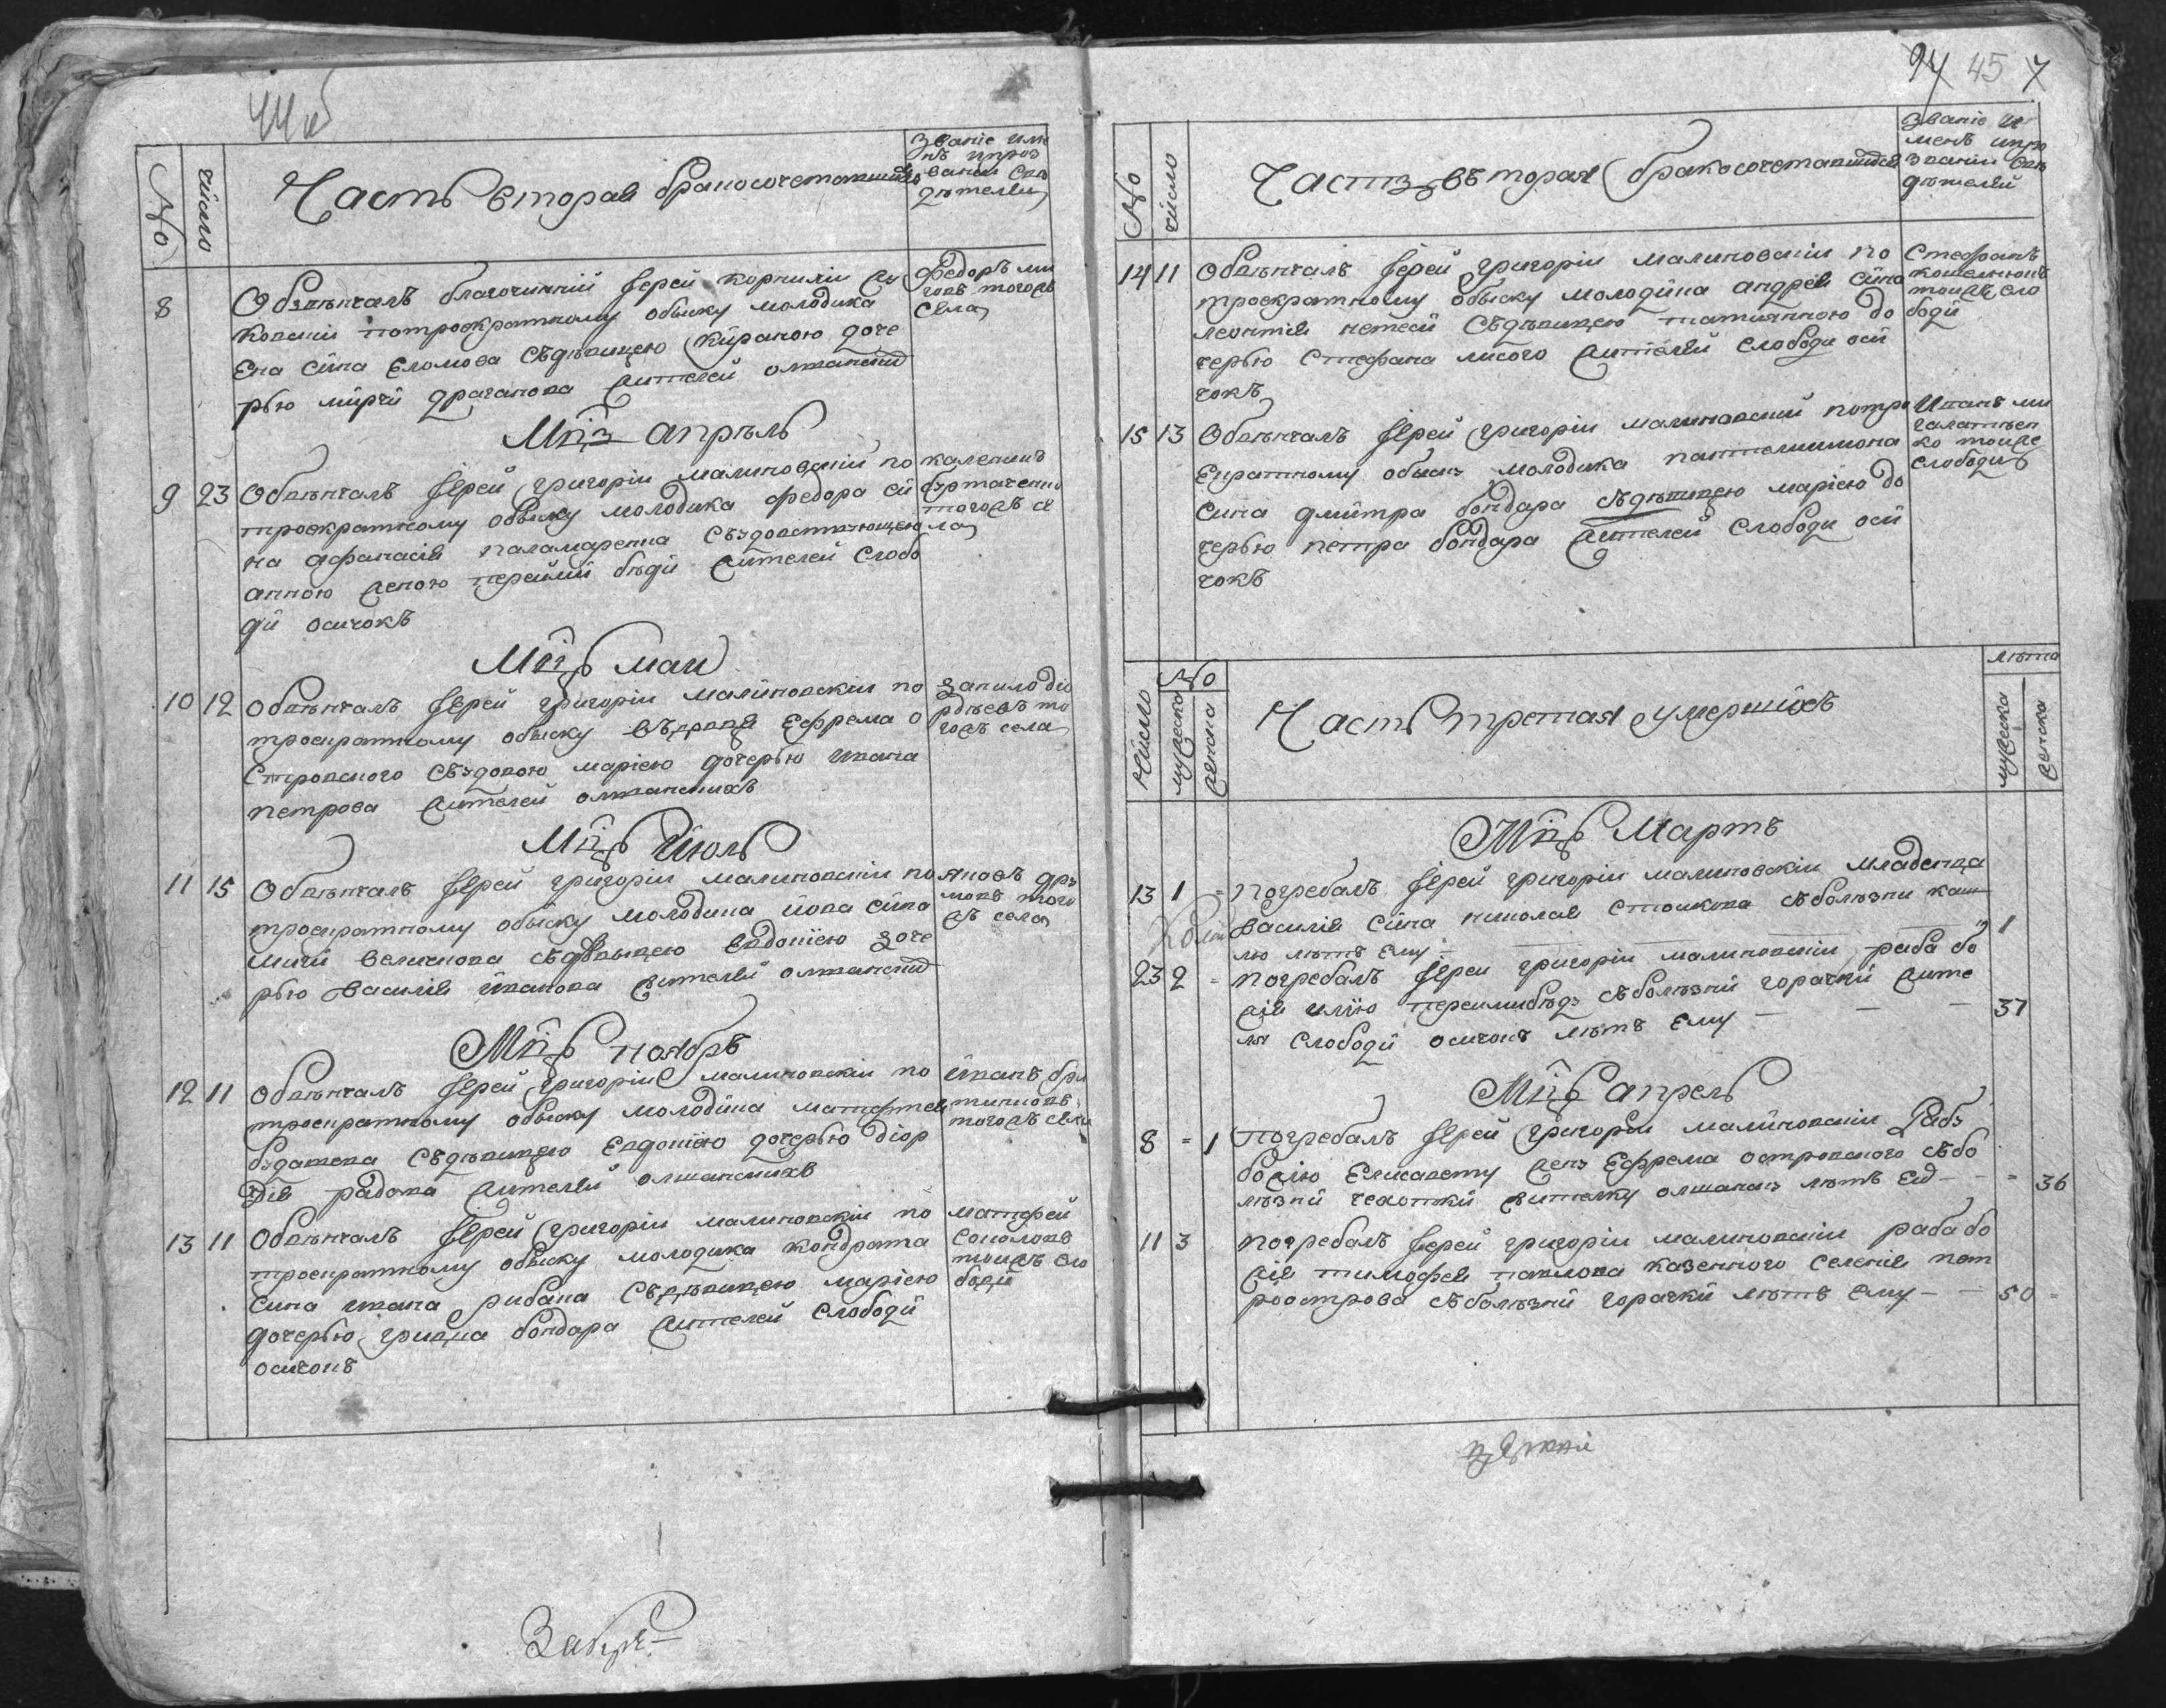 No
число
Часть вторая бракосочетавшихся
Званіе име
нъ ипроз
ваніи сви
дѣтелей
8
Обвѣнчалъ благочинній Іерей корнилій
ковскій потроекратному обыску молодика
Ена сина Еломова сѣдѣвицею кираною доче
рью мирчи драганова жителей олшанских
Федоръ ми
говъ тогожъ
села
Мцъ апрѣль
9 23
Обвѣнчалъ Іерей григорій малиновскій по
троекратному обыску молодика федора си
на афанасія паламаренка сѣздовствующею
анною женою перейми бѣди жителей слобо
ди осичокъ
каленикъ
тогожъ се
ла
Мцъ маи
10 12
Обвѣнчалъ Іерей григорій малиновскій по
троекратному обыску вѣдовца Ефрема о
стровского сѣвдовою марією дочерью ивана
петрова жителей олшанскихъ
данило діо
рдѣевъ то
гожъ села
Мцъ Июль
11 15
Обвѣнчалъ Іерей григорій малиновскій по
троекратному обыску молодика йова сина
мичи великова сѣдѣвицею Евдокією доче
рью василія иванова жителей олшанских
яковъ дръ
мовъ того
жъ села
Мцъ ноябрь
12 11
Обвѣнчалъ Іерей григорій малиновскій по
троекратному обыску молодика матфея
бздатева сѣдѣвицею Евдокією дочерью діор
дія радова жителей олшанскихъ
иванъ бри
тинковъ
тогожъ села
13 11
Обвѣнчалъ Іерей григорій малиновскій по
троекратному обыску молодика кондрата
сина ивана рибака сѣдѣвицею марією
дочерью грицка бондара жителей слободи
осичокъ
матфей
соколовъ
тоижъ сло
боди
94 45 7
No
число
Часть вторая бракосочетавшихся
Званіе и
менъ ипро
званіи сви
дѣтелей
14 11
Обвѣнчалъ Іерей григорій малиновскій по
троекратному обыску молодика андрея сина
леонтія нетесы сѣдѣвицею татиянною до
черью стефана лисого жителей слободи оси
чокъ
Стефанъ
тоижъ сло
боди
15 13
Обвѣнчалъ Іерей григорій малиновский потро
Екратному обыскъ молодика пантелимона
сина дмитра бондара сѣдѣвицею марією до
черью петра бондара жителей слободи оси
чокъ
Иванъ ми
галатьен
ко тоиже
слободи
Число
No
мужеска
женска
Часть третая умершихъ
лѣта
мужеска
женска
Мцъ Мартъ
13 1 -
погребалъ Іерей григорій малиновскій младенца
василія сина николая стоикова сѣболѣзни каш
лю лѣтъ ему
1
23 2 -
погребалъ Іерей григорій малиновскій раба бо
жія илию переимибѣдъ сѣболѣзній горачки жите
ля слободи осичокъ лѣтъ Ему — — —
37
Мцъ апрель
8 - 1
погребалъ Іерей григорій малиновскій Рабъ
божію Елисавету женъ Ефрема островского сѣбо
лѣзній чехотки жителку олшанскъ лѣтъ Ей - -
36
11 3
погребалъ Іерей григорій малиновскій раба бо
жія тимофея павлова казенного селенія пет
роострова сѣболѣзній горачки лѣтъ Ему - -
50 -